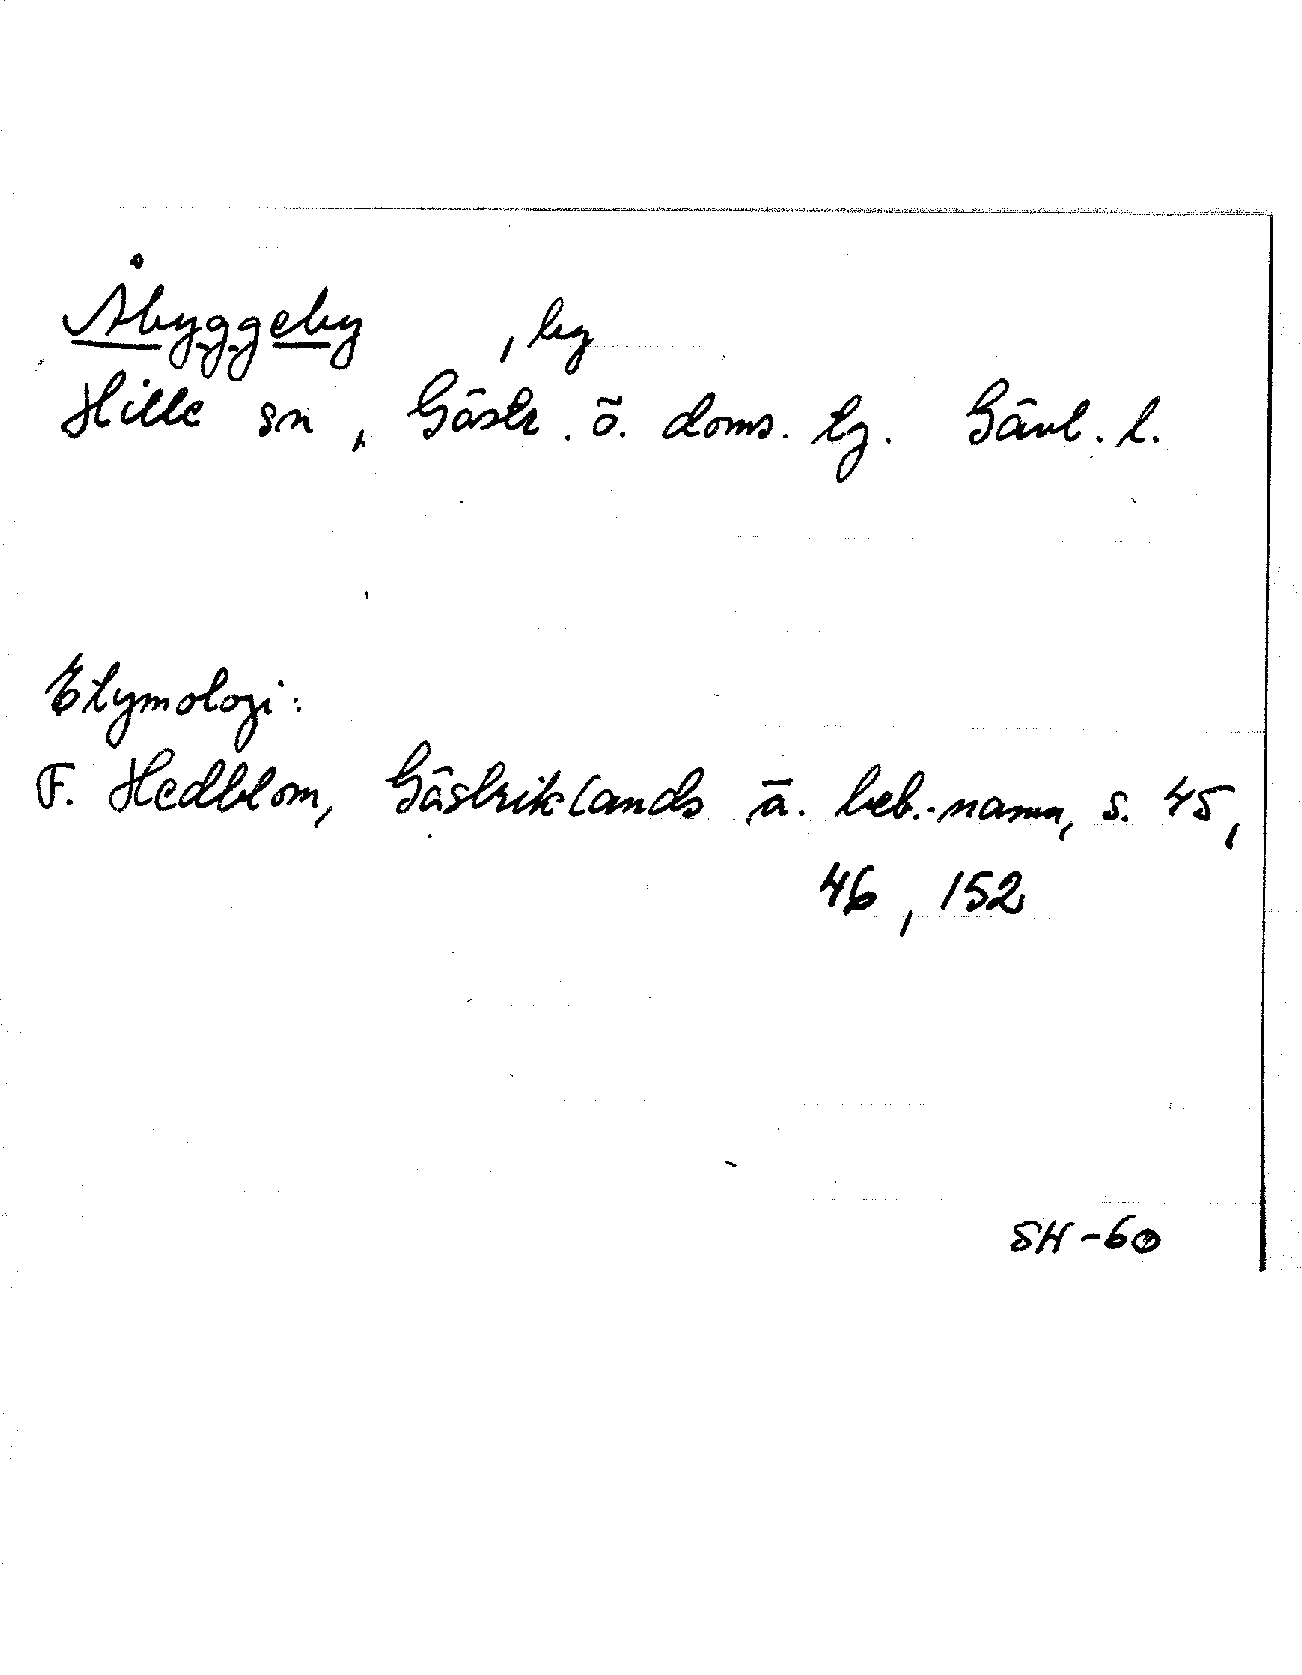 Åbyggeby , by
Hille sn , Gästr. ö. doms. tg. Gävl. l.
Etymologi:
F. Hedblom, Gästriklands ä. beb.-namn, s. 45,
46, 152
SH-60